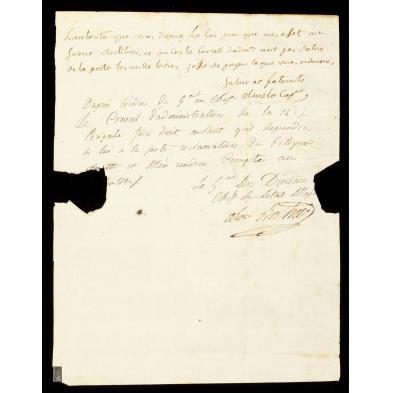 L'autorité que vous donne la loi pour que mes effet me
soient restitués, et au cas le Conseil d'adm. n'ait pas
de la porte les mille livres, de payer ce que vous ordonnerez,
Salut et fraternité
D'après l'ordre du G.al en Chef
Le Conseil d'administration de la 12.
Brigade fera droit autant qu'il dépendra
de lui à la juste réclamation du Citoyen
et m'en rendra Compte au
plutot /.
Le G.al de Division
Chef de l'état Mor
Alex. Berthier